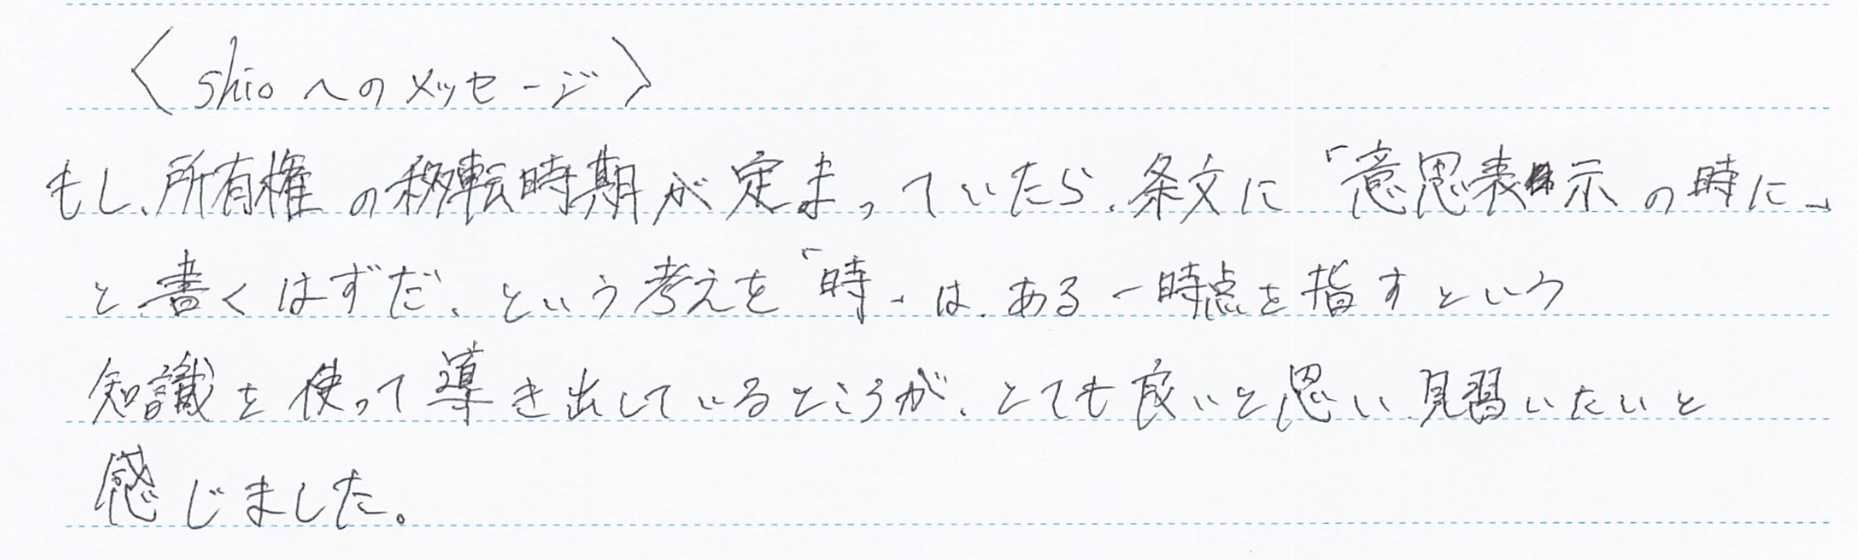 〈shioへのメッセージ〉
もし、所有権の移転時期が定まっていたら、条文に「意思表示の時に」
と書くはずだ、という考えを「時」は、ある一時点を指すという
知識を使って導き出しているところが、とても良いと思い、見習いたいと
感じました。